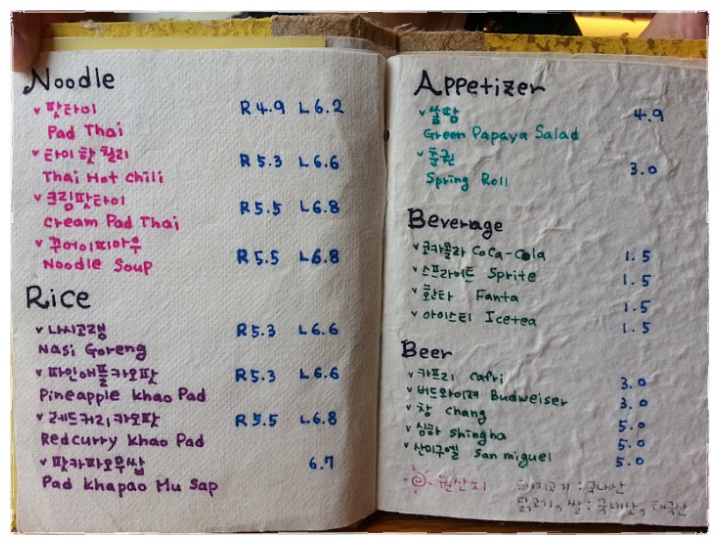 Noodle
v 팟타이 R4.9 L6.2
Pad Thai
v 타이 핫 칠리 R5.3 L6.6
Thai Hot chili
v 크림팟타이 R5.5 L6.8
cream Pad Thai
v 꾸어이띠아우 R5.5 L6.8
Noodle Soup
Rice
v 나시고랭 R5.3 L6.6
Nasi Goreng
v 파인애플카오팟 R5.3 L6.6
Pineapple khao Pad
v 레드커리카오팟 R5.5 L6.8
Redcurry khao Pad
v 팟카파오무쌉 6.7
Pad khapao Mu Sap
Appetizer
v 쏨땀 4.9
Green Papaya Salad
v 춘권 3.0
Spring Roll
Beverage
v 코카콜라 CoCa-Cola 1.5
v 스프라이트 Sprite 1.5
v 환타 Fanta 1.5
v 아이스티 Icetea 1.5
Beer
v 카프리 Cafri 3.0
v 버드와이져 Budweiser 3.0
v 창 Chang 5.0
v 싱하 Shingha 5.0
v 산미구엘 San miguel 5.0
원산지 돼지고기 : 국내산
닭고기, 쌀 : 국내산, 태국산